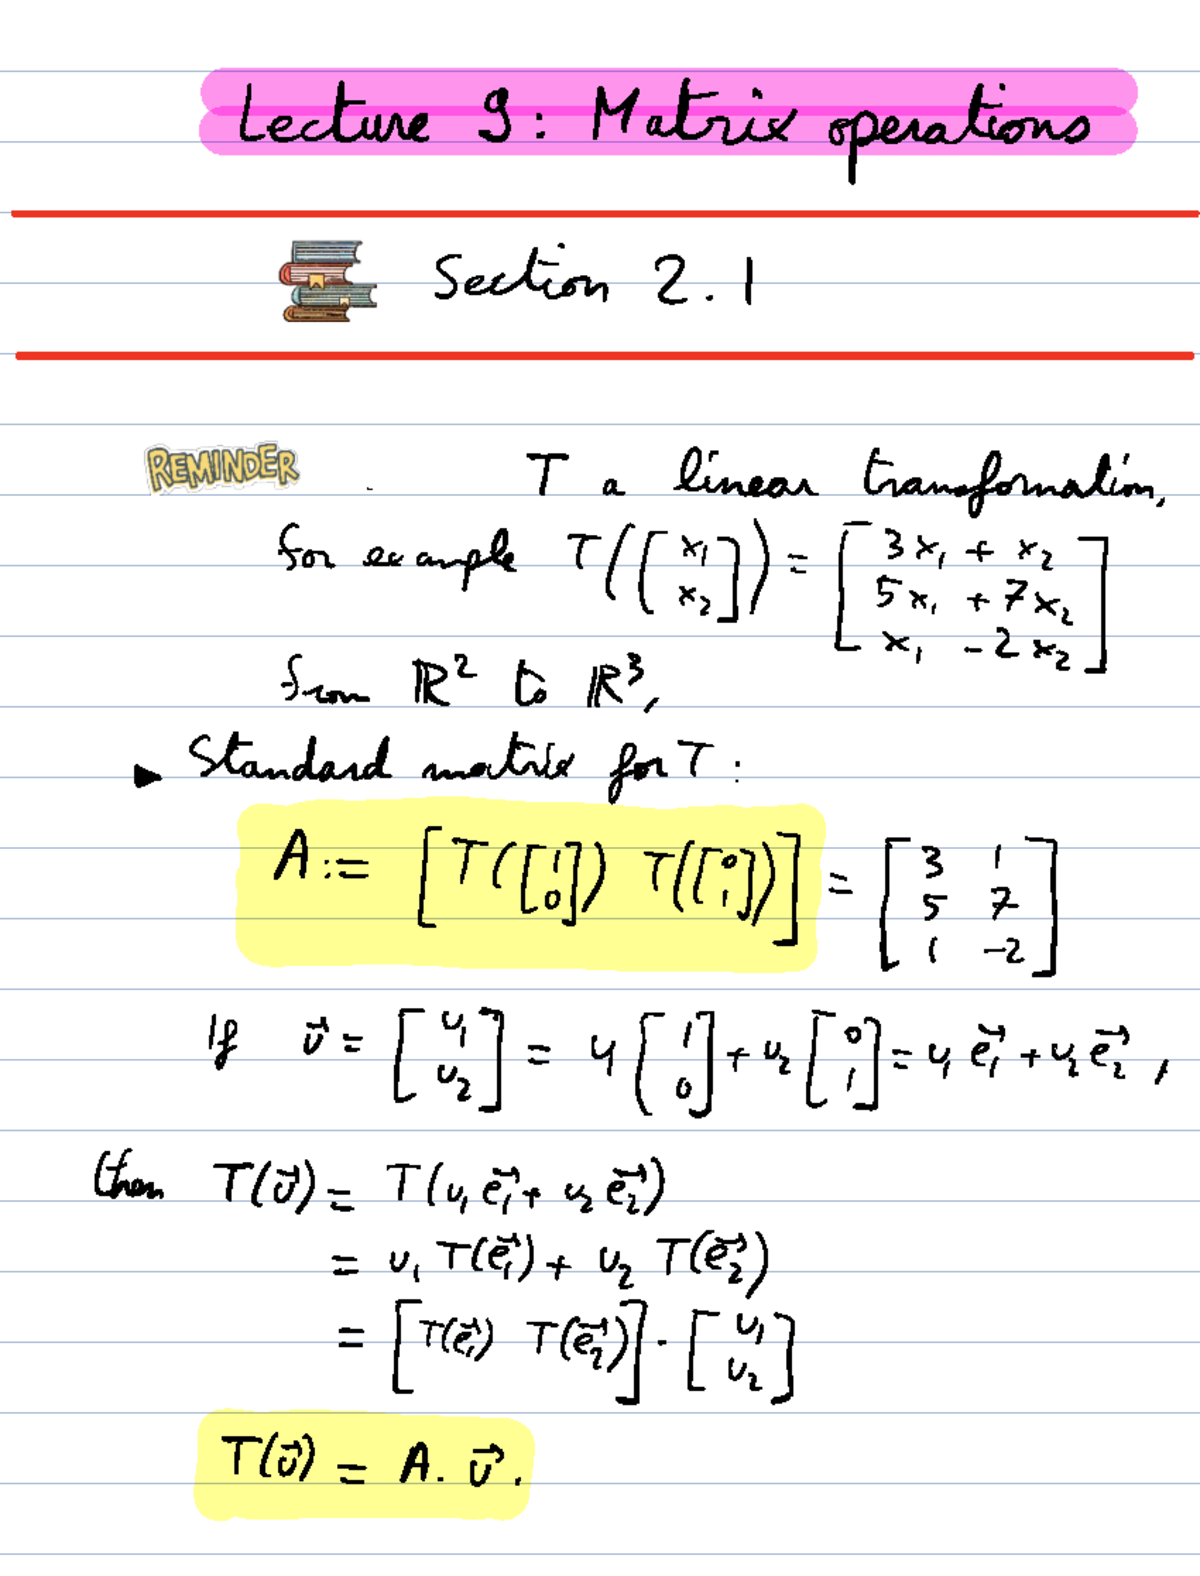 Lecture 9: Matrix operations
Section 2.1
REMINDER . T a linear transformation,
for example T([x₁ x₂]) = [3x₁ + x₂
5x₁ + 7x₂
x₁ - 2x₂]
from ℝ² to ℝ³,
▶ Standard matrix for T:
A := [T([1 0]) T([0 1])] = [3 1
5 7
1 -2]
If v⃗ = [v₁ v₂] = v₁[1 0] + v₂[0 1] = v₁e₁⃗ + v₂e₂⃗,
then T(v⃗) = T(v₁e₁⃗ + v₂e₂⃗)
= v₁ T(e₁⃗) + v₂ T(e₂⃗)
= [T(e₁⃗) T(e₂⃗)] · [v₁ v₂]
T(v⃗) = A. v⃗.